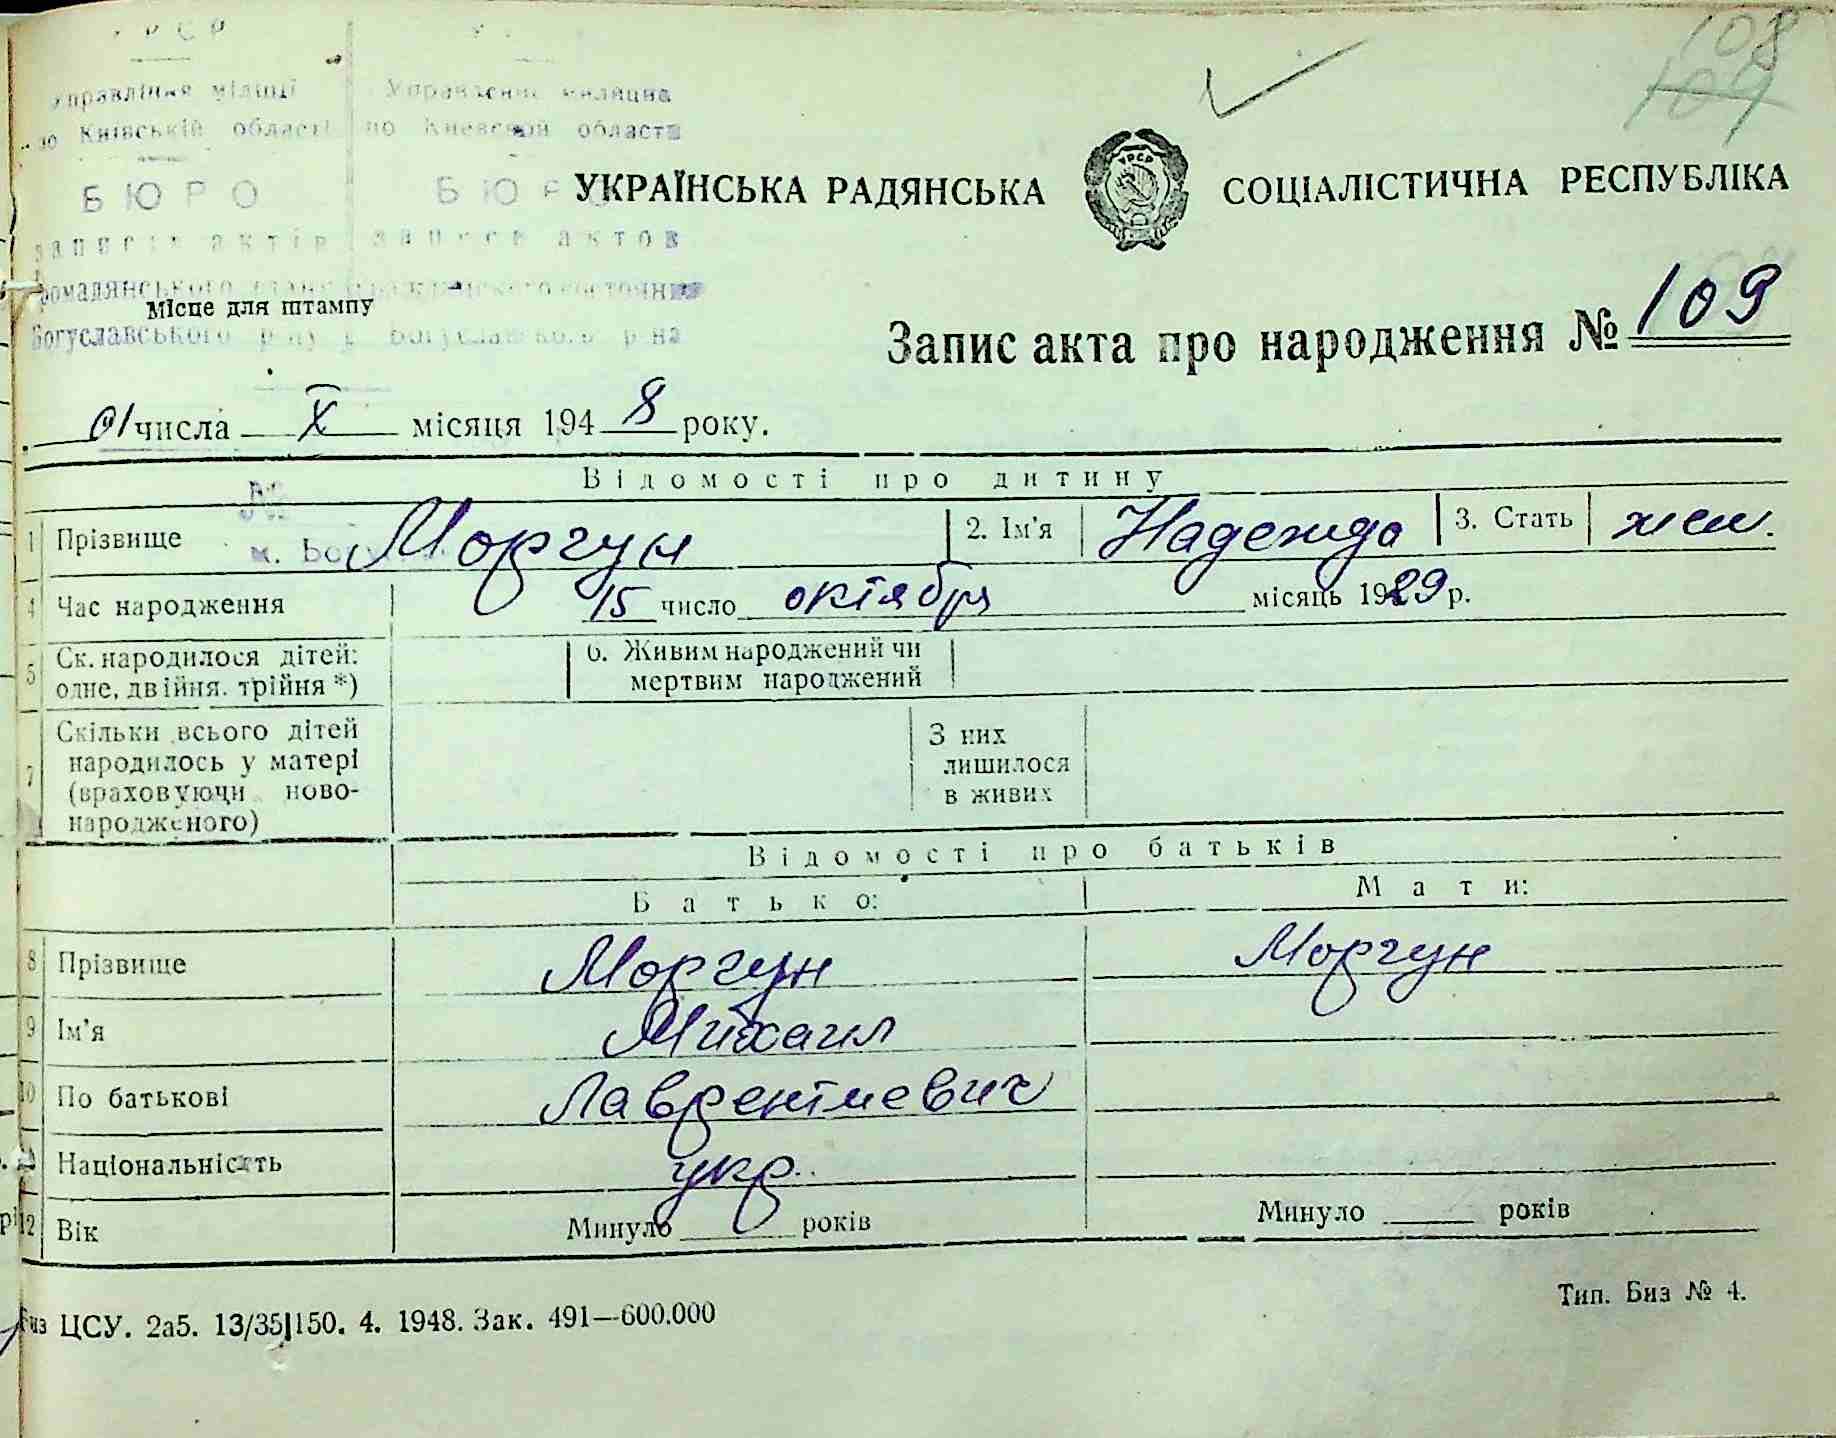 108
109
УРСР
Управління міліції Управление милиции
по Київській області по Киевской области
БЮРО БЮРО
УКРАЇНСЬКА РАДЯНСЬКА СОЦІАЛІСТИЧНА РЕСПУБЛІКА
УРСР
записів актів записи актов
громадянського стану гражданского состояния
Місце для штампу
Богуславського р-ну Богуславского р-на
Запис акта про народження № 109
01 числа X місяця 1948 року.
Відомості про дитину
№
м. Богу
1 Прізвище Моргун 2. Ім'я Надежда 3. Стать жен.
4 Час народження 15 число октября місяць 1929 р.
5 Ск. народилося дітей: 6. Живим народжений чи
одне, двійня, трійня *) мертвим народжений
7 Скільки всього дітей З них
народилось у матері лишилося
(враховуючи ново- в живих
народженого)
Відомості про батьків
Батько: Мати:
8 Прізвище Моргун Моргун
9 Ім'я Михаил
10 По батькові Лаврентиевич
Національність укр.
12 Вік Минуло ____ років Минуло ____ років
Биз ЦСУ. 2а5. 13/35|150. 4. 1948. Зак. 491—600.000 Тип. Биз № 4.